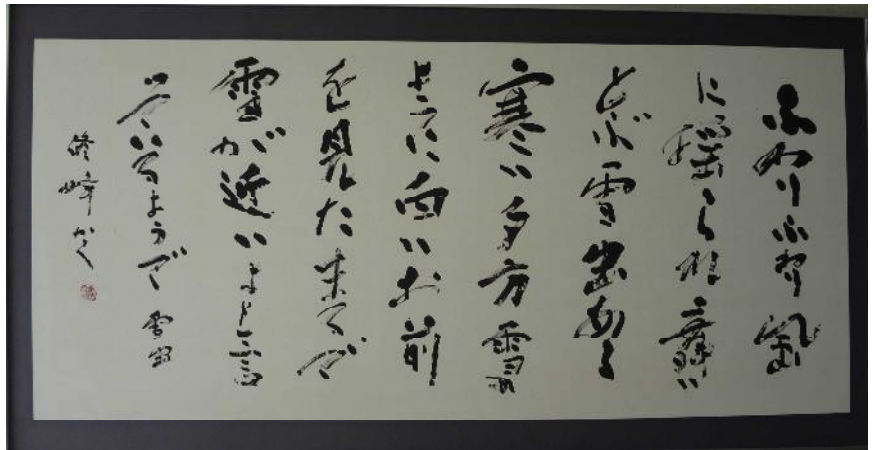 ふわりふわり風
に揺られ舞い
とぶ雪虫ある
寒い夕方雪
に白いお前
を見たまるで
雪が近いよと言
っているようで 雪虫
峰かく